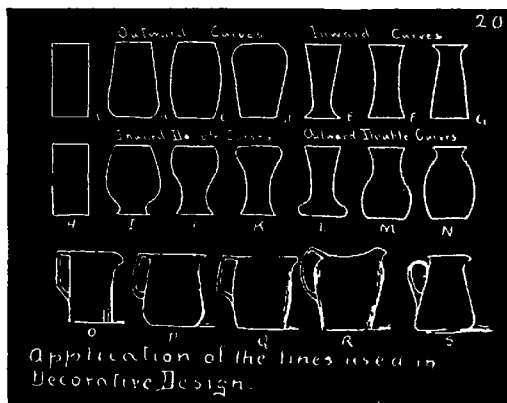 20
Outward Curves Inward Curves
A C E F G
Inward Double Curves Outward Double Curves
H I K L M N
O P Q R S
Application of the lines used in
Decorative Design.